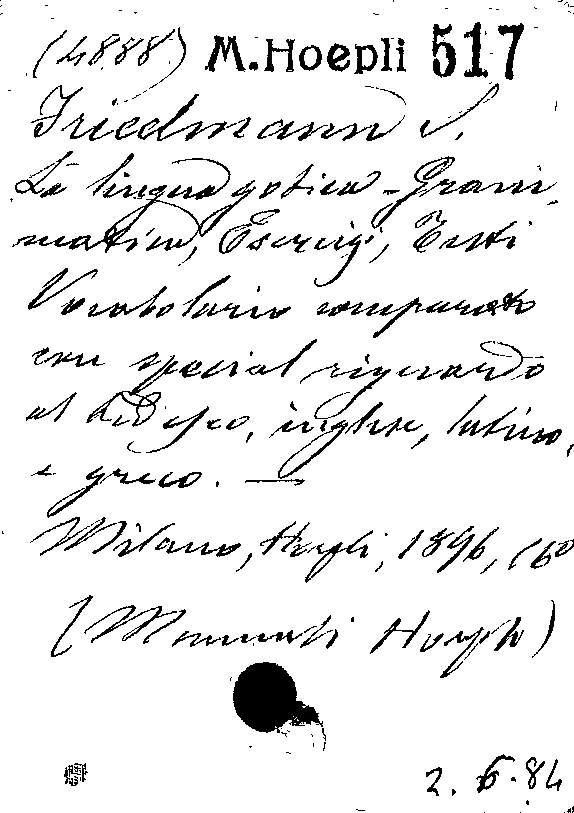 (4888) M.Hoepli 517
Friedmann S.
La lingua gotica - Gram-
matica, Esercizi, Testi
Vocabolario comparato
con special riguardo
al tedesco, inglese, latino,
e greco. —
Milano, Hoepli, 1896, 16°
(Manuali Hoepli)
2. 6. 84